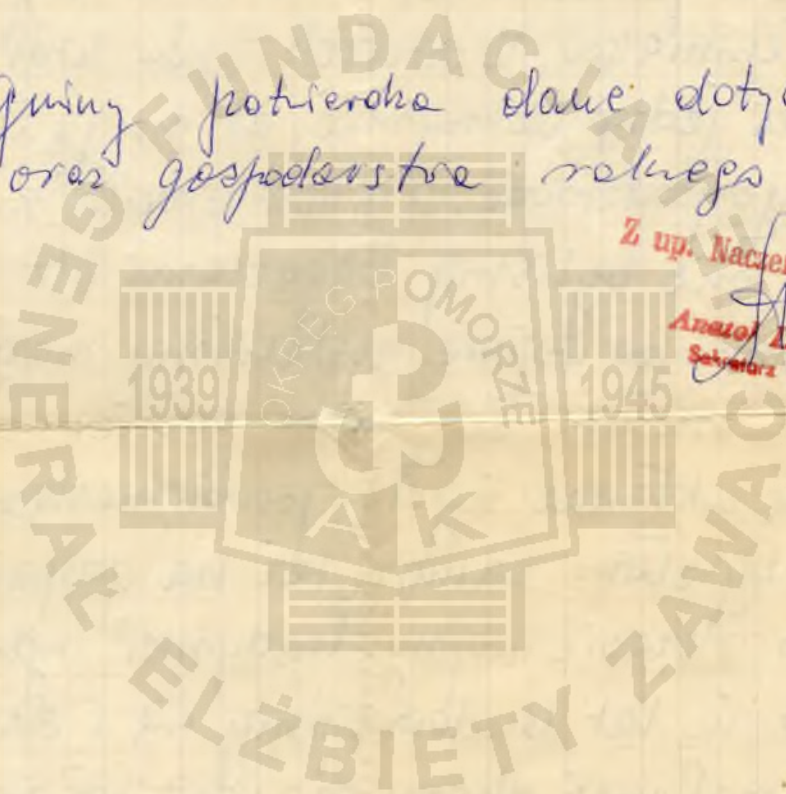 Gminy potwierdza dane doty
oraz gospodarstwa rolnego
Z up. Nacze
Anatol
Sekretarz
FUNDACJA GENERAŁ ELŻBIETY ZAWAC
OKRĘG POMORZE
1939 1945
AK